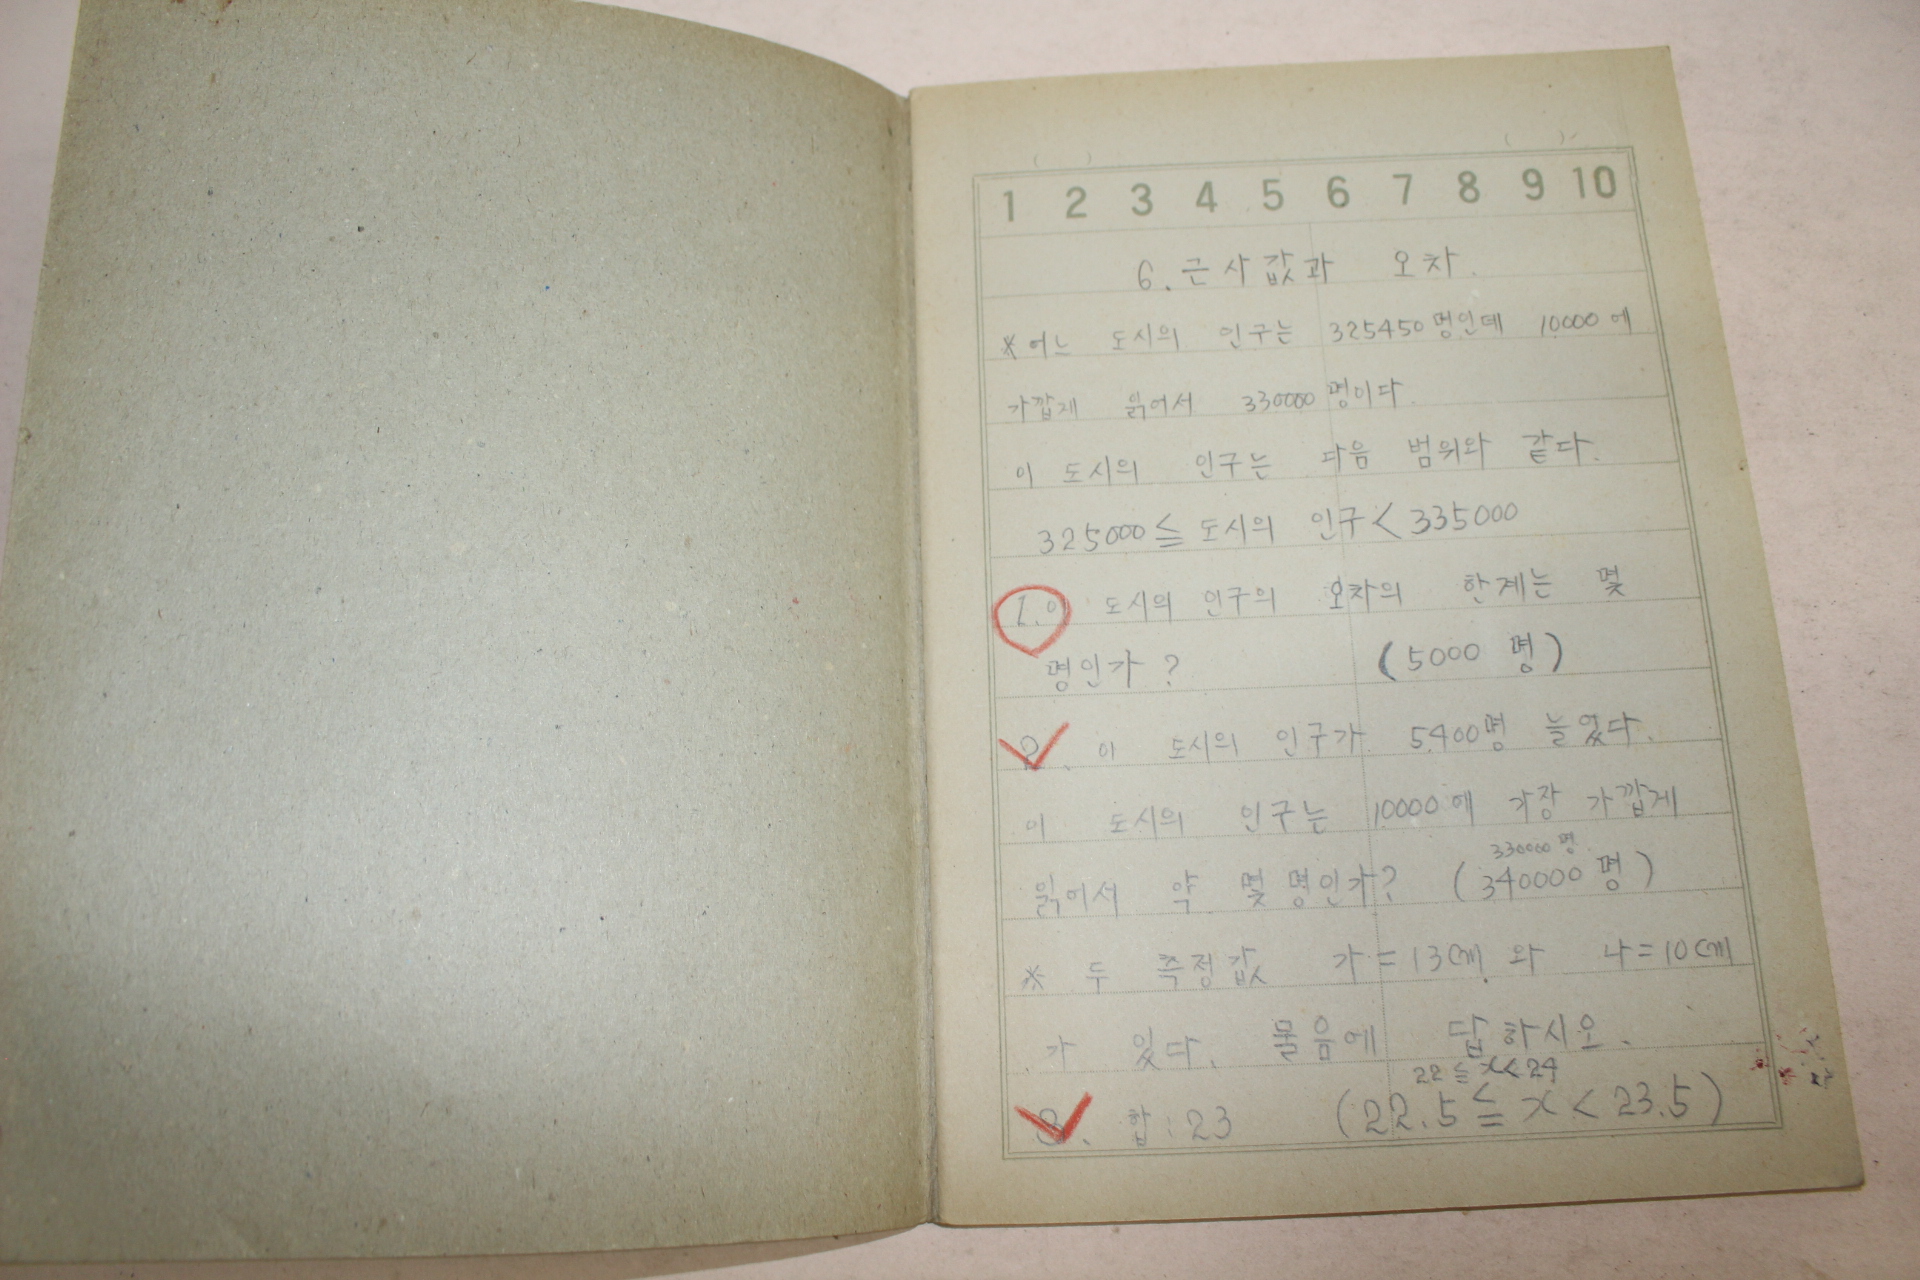 1 2 3 4 5 6 7 8 9 10
6. 근사값과 오차.
※ 어느 도시의 인구는 325450명인데 10000에
가깝게 읽어서 330000명이다.
이 도시의 인구는 다음 범위와 같다.
325000 ≦ 도시의 인구 < 335000
1. 이 도시의 인구의 오차의 한계는 몇
명인가? (5000 명)
2. 이 도시의 인구가 5400명 늘었다.
이 도시의 인구는 10000에 가장 가깝게
330000 명.
읽어서 약 몇 명인가? (340000 명)
※ 두 측정값 가=13cm 와 나=10cm
가 있다. 물음에 답하시오.
22 ≦ x < 24
3. 합: 23 (22.5 ≦ x < 23.5)